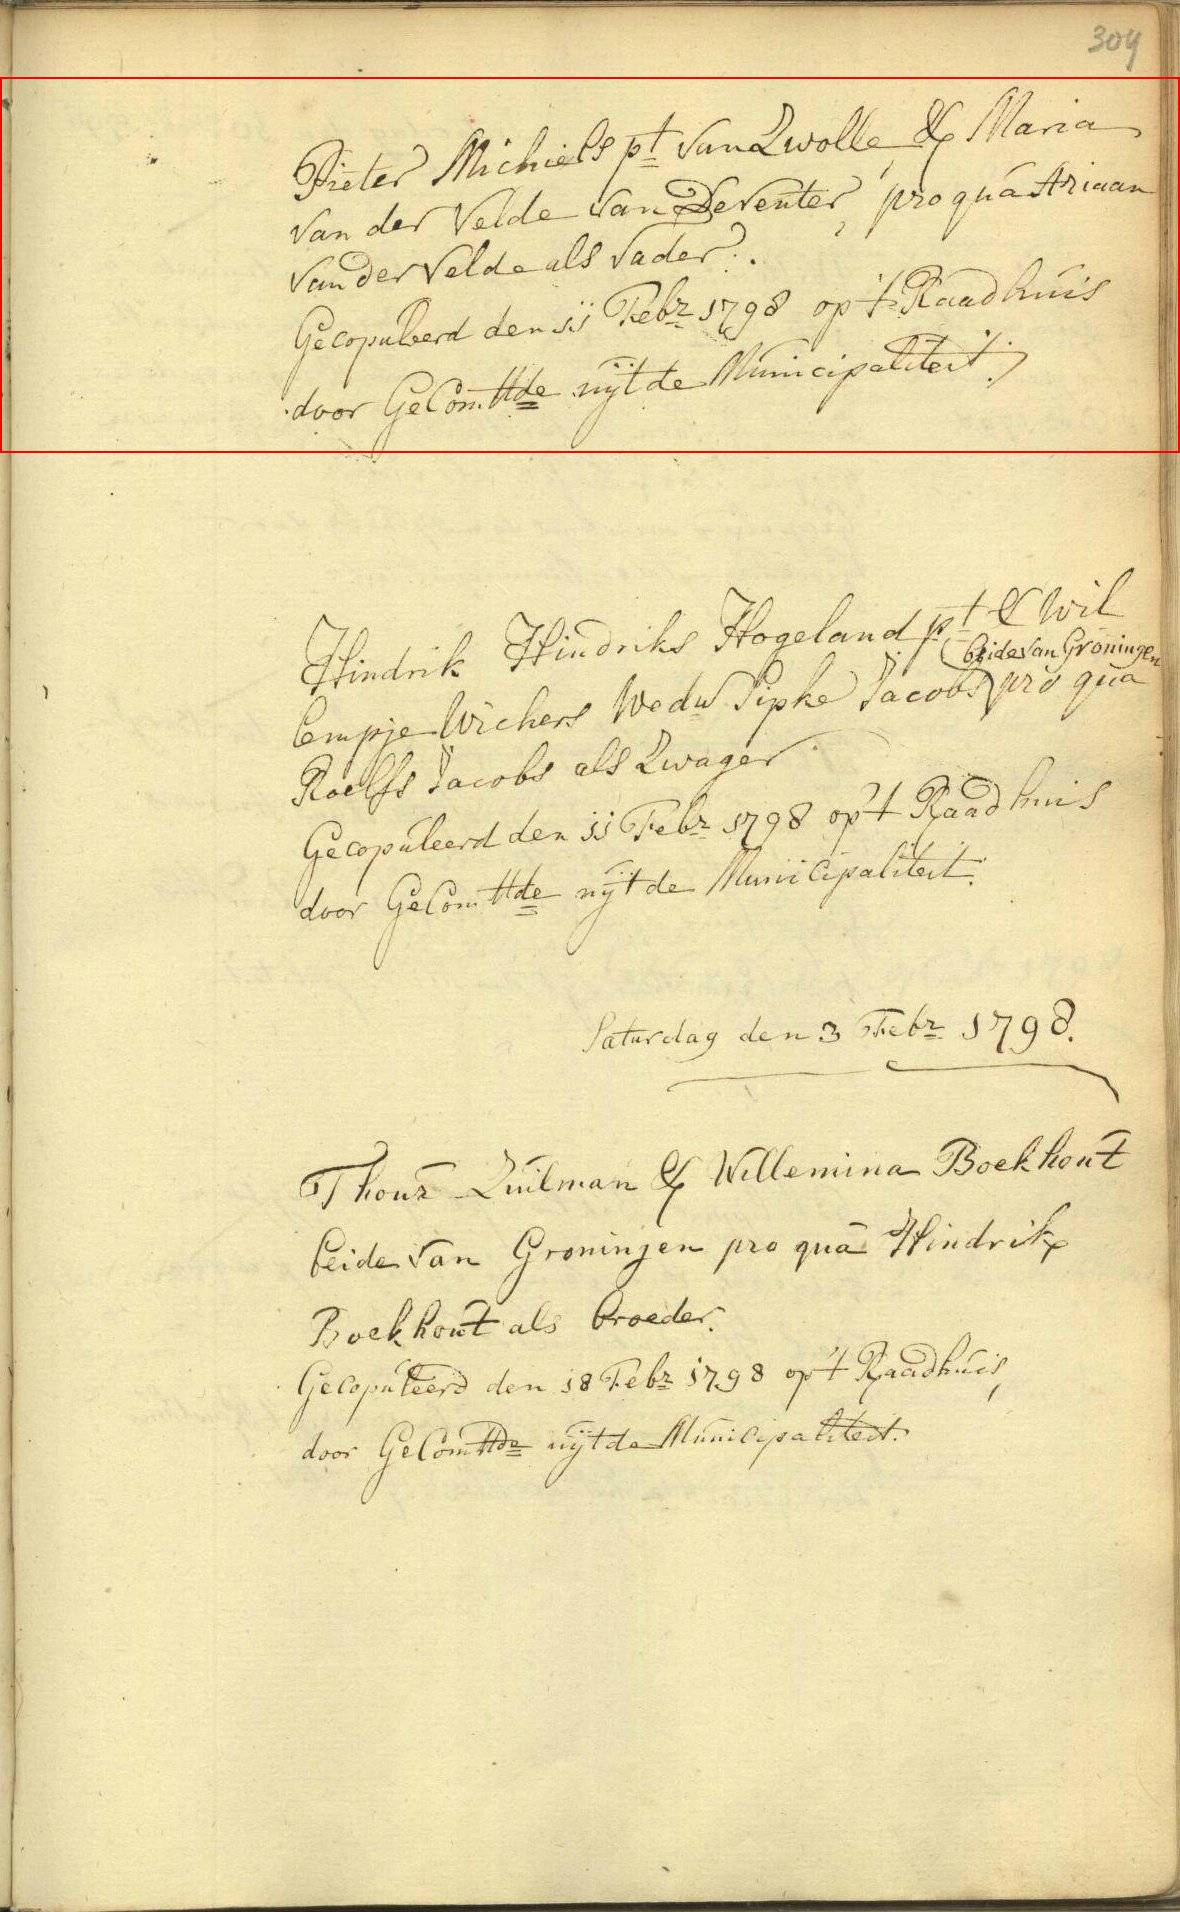 304
Pieter Michiels pt van Zwolle & Maria
van der Velde van Deventer, pro qua Ariaan
van der Velde als vader.
Gecopuleerd den 11 Febr 1798 op 't Raadhuis
door GeComttde uijt de Municipaliteit.
Hindrik Hindriks Hogeland pt & Wil
beide van Groningen
lempje Wichers Wedw Sipke Jacobs pro qua
Roelfs Jacobs als Zwager
Gecopuleerd den 11 Febr 1798 op 't Raadhuis
door GeComttde uijt de Municipaliteit.
Saturdag den 3 Febr 1798.
Zuilman & Willemina Boekhout
beide van Groningen pro qua Hindrik
Boekhout als broeder.
Gecopuleerd den 18 Febr 1798 op 't Raadhuis,
door GeComttde uijt de Municipaliteit.